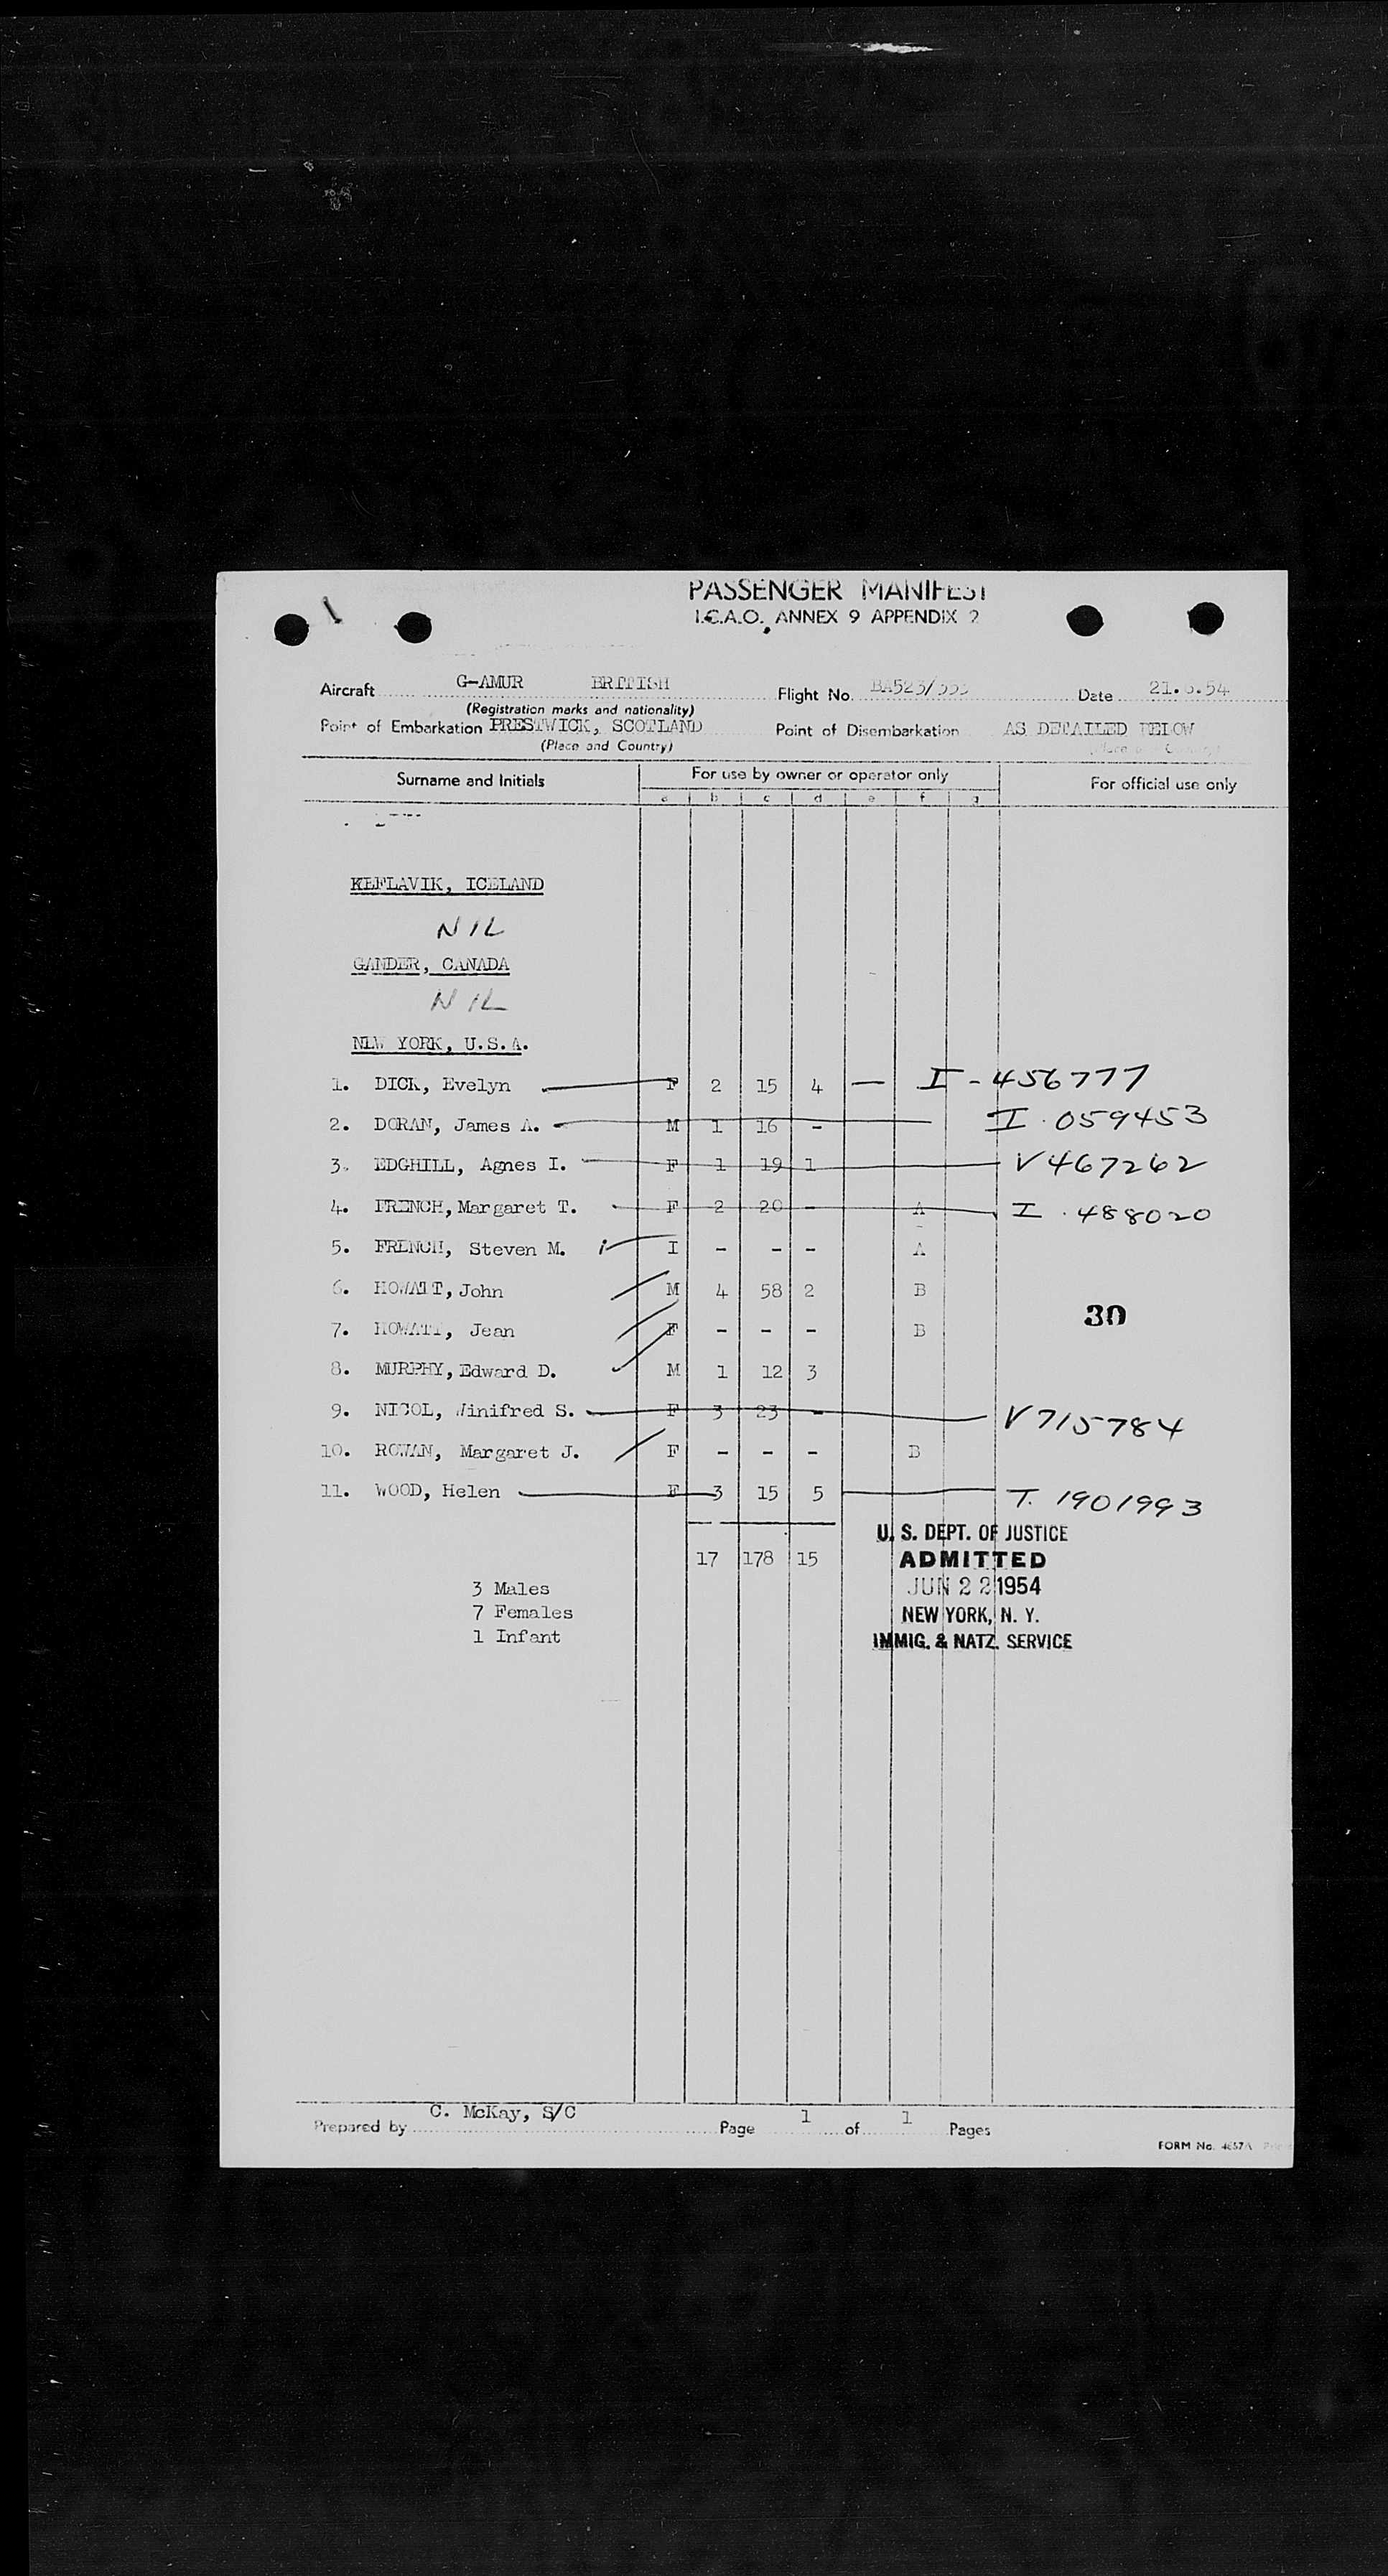 PASSENGER MANIFEST
I.C.A.O. ANNEX 9 APPENDIX 2
Aircraft G-AMUR BRITISH Flight No. BA523/ Date 21.6.54
(Registration marks and nationality)
Point of Embarkation PRESTWICK, SCOTLAND Point of Disembarkation AS DETAILED BELOW
(Place and Country) (Place and Country)
Surname and Initials For use by owner or operator only For official use only
a b c d e f g
KEFLAVIK, ICELAND
NIL
GANDER, CANADA
NIL
NEW YORK, U.S.A.
1. DICK, Evelyn F 2 15 4 — I-456777
2. DORAN, James A. M 1 16 - I.059453
3. EDGHILL, Agnes I. F 1 19 1 V467262
4. FRENCH, Margaret T. F 2 20 - A I.488020
5. FRENCH, Steven M. I - - - A
6. HOWATT, John M 4 58 2 B
30
7. HOWATT, Jean F - - - B
8. MURPHY, Edward D. M 1 12 3
9. NICOL, Winifred S. F 3 23 - V715784
10. ROWAN, Margaret J. F - - - B
11. WOOD, Helen F 3 15 5 T. 1901993
U. S. DEPT. OF JUSTICE
17 178 15 ADMITTED
3 Males JUN 22 1954
7 Females NEW YORK, N. Y.
1 Infant IMMIG. & NATZ. SERVICE
Prepared by C. McKay, S/C Page 1 of 1 Pages
FORM No. 4657A